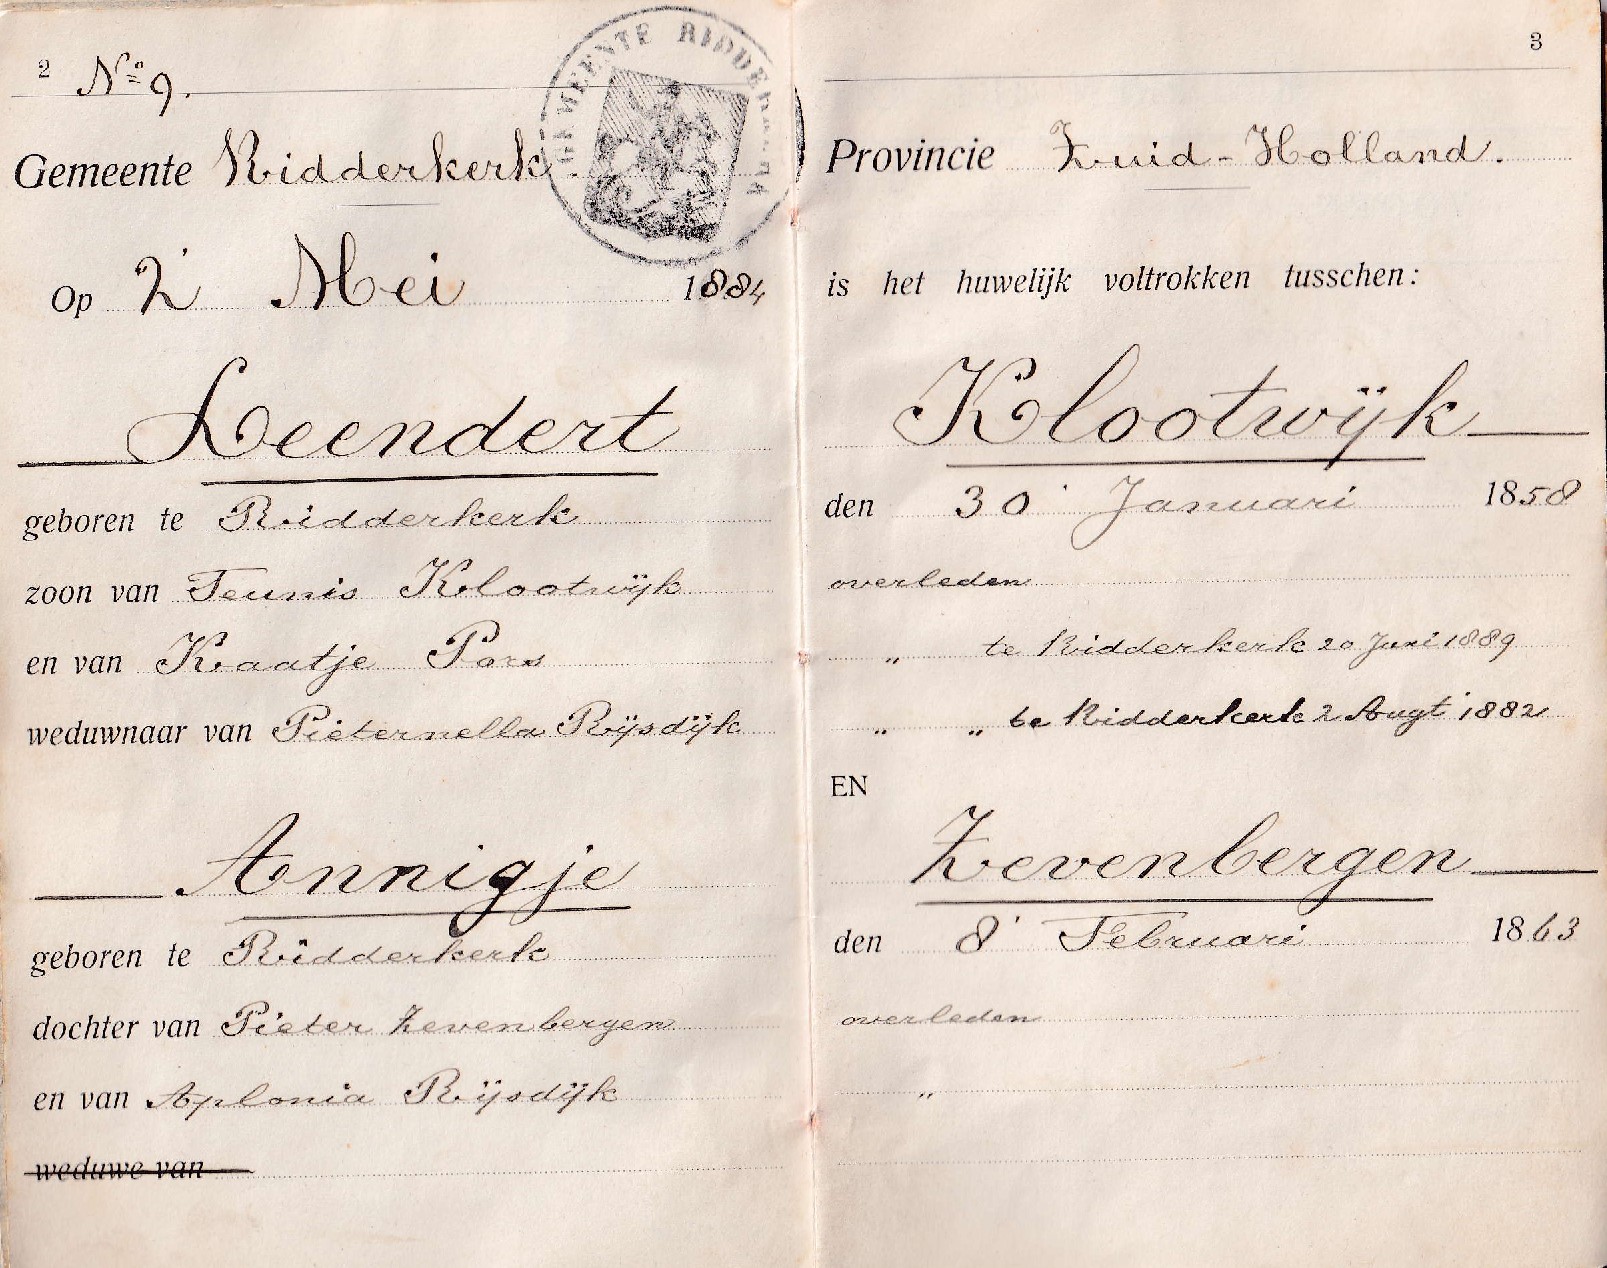 2 Nº 9.
GEMEENTE RIDDERKERK
Gemeente Ridderkerk.
Op 2' Mei 1884
Leendert
geboren te Ridderkerk
zoon van Teunis Klootwijk
en van Kaatje Pors
weduwnaar van Pieternella Rijsdijk
Annigje
geboren te Ridderkerk
dochter van Pieter Zevenbergen
en van Aplonia Rijsdijk
weduwe van
3
Provincie Zuid-Holland.
is het huwelijk voltrokken tusschen:
Klootwijk
den 30' Januari 1858
overleden
„ te Ridderkerk 20 Juni 1889
„ „ te Ridderkerk 2 Augt 1882
EN
Zevenbergen
den 8' Februari 1863
overleden
„